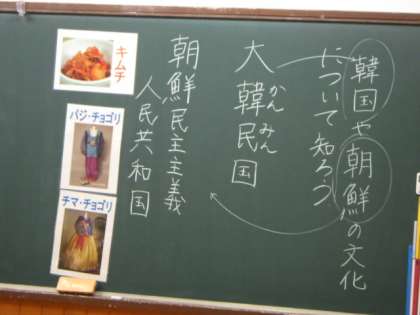 韓国や朝鮮の文化
について知ろう
大韓民国
かんみん
朝鮮民主主義
人民共和国
キムチ
パジ・チョゴリ
チマ・チョゴリ